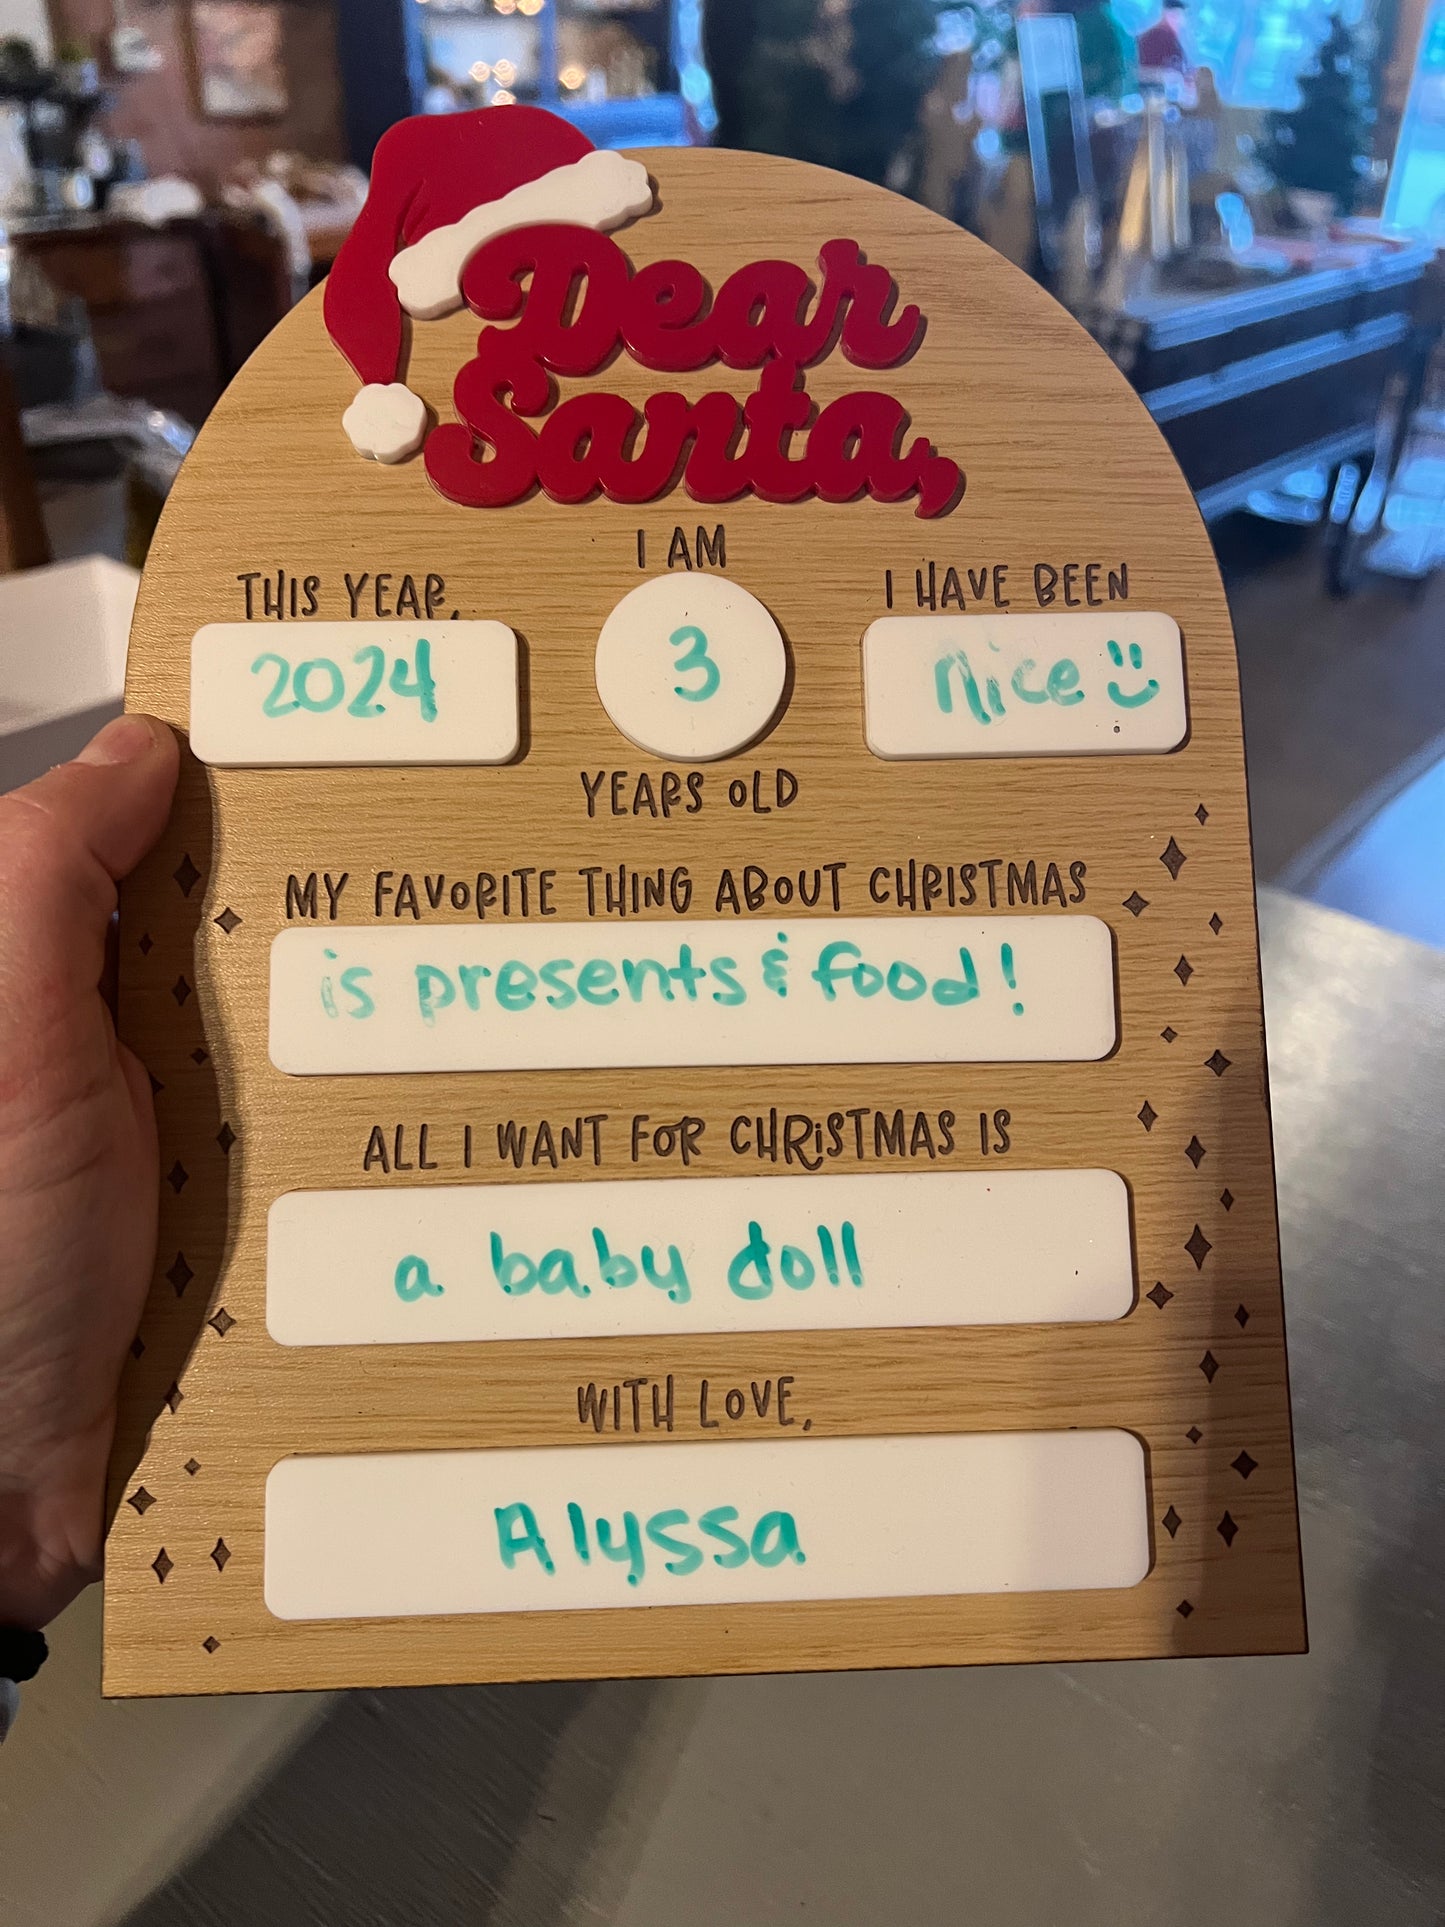 Dear
Santa,
THIS YEAR,
2024
I AM
3
YEARS OLD
I HAVE BEEN
nice
MY FAVORITE THING ABOUT CHRISTMAS
is presents & food!
ALL I WANT FOR CHRISTMAS IS
a baby doll
WITH LOVE,
Alyssa